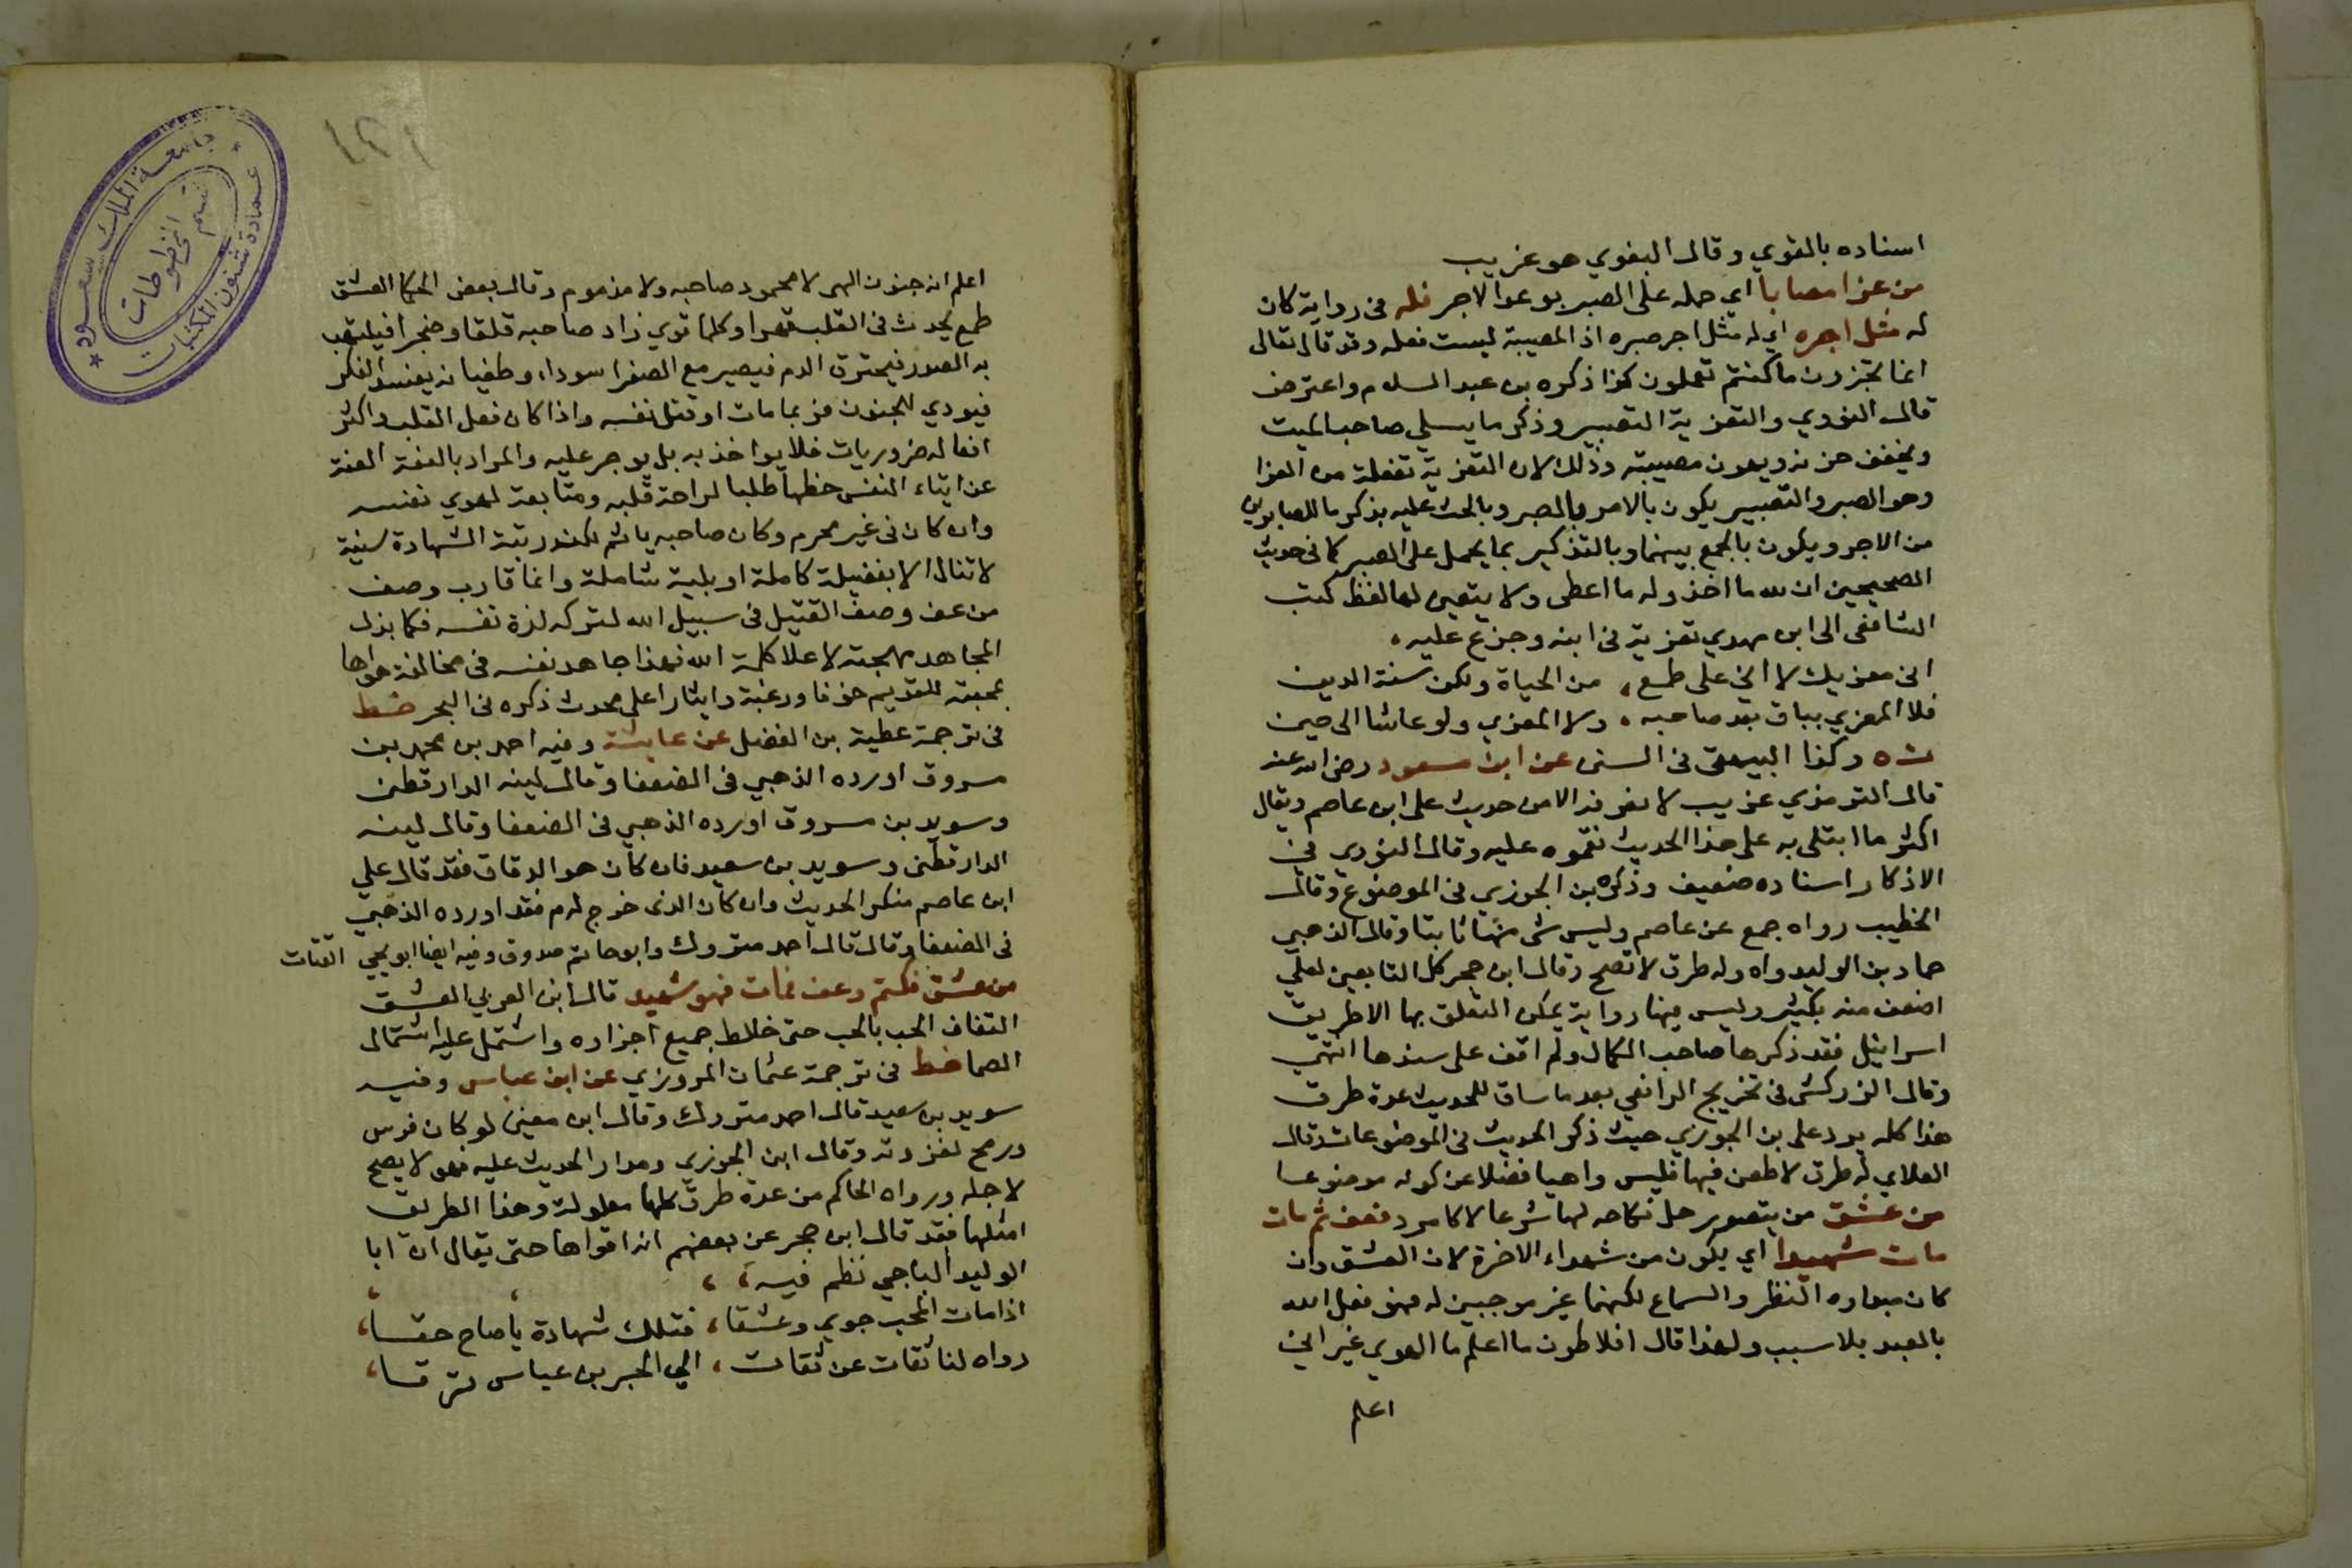 اسناده بالقوي وقال البغوي هو غريب
من عزا مصابا اي حمله على الصبر بوعد الاجر فله في رواية كان
له مثل اجره اي له مثل اجر صبره اذ المصيبة ليست فعله وقد قال تعالى
انما تجزون ما كنتم تعملون كذا ذكره بن عبد السلام واعترض
قال النووي والتعزية التصبير وذكر ما يسلي صاحب الميت
ويخفف حزنه ويهون مصيبته وذلك لان التعزية تفعلة من العزا
وهو الصبر والتصبير يكون بالامر بالصبر وبالحث عليه بذكر ما للصابرين
من الاجر ويكون بالجمع بينهما وبالتذكير بما يحمل على الصبر كما في حديث
الصحيحين ان لله ما اخذ وله ما اعطى ولا يتعين لها لفظ كتب
الشافعى الى ابن مهدي تعزية في ابنه وجزع عليه
اني معزيك لا اني على طمع ، من الحياة ولكن سنة الدين
فلا المعزي بباق بعد صاحبه ، ولا المعزي ولو عاشا الى حين
ت ه وكذا البيهقى في السنن عن ابن مسعود رضي الله عنه
قال الترمذي غريب لا نعرفه الا من حديث على ابن عاصم ويقال
اكثر ما ابتلى به على هذا الحديث نقموه عليه وقال النووي في
الاذكار اسناده ضعيف وذكره بن الجوزي في الموضوع وقال
الخطيب رواه جمع عن عاصم وليس شى منها ثابتا وقال الذهبي
حماد بن الوليد واه وله طرق لا تصح وقال ابن حجر كل التابعين لعلي
اضعف منه بكثير وليس فيها رواية يمكن التعلق بها الا طريق
اسرائيل فقد ذكرها صاحب الكمال ولم اقف على سندها انتهى
وقال الزركشى في تخريج الرافعي بعد ما ساق للحديث عدة طرق
هذا كله يرد على بن الجوزي حيث ذكر الحديث في الموضوعات وقال
العلاي له طرق لا طعن فيها فليس واهيا فضلا عن كونه موضوعا
من عشق من يتصور حل نكاحه لها شرعا لا كامرد فعف ثم مات
مات شهيدا اي يكون من شهداء الاخرة لان العشق وان
كان مبداوه النظر والسماع لكنهما غير موجبين له فهو فعل الله
بالعبد بلا سبب ولهذا قال افلاطون ما اعلم ما الهوي غير اني
اعلم
١٢١
جامعة الملك سعود
قسم المخطوطات
عمادة شئون المكتبات
اعلم انه جنون الهى لا محمود صاحبه ولا مذموم وقال بعض الحكما العشق
طمع يحدث في القلب قهرا وكلما قوي زاد صاحبه قلقا وضجرا فيلتهب
به الصدر فيحترق الدم فيصير مع الصفرا سوداء وطغيانه يفسد الفكر
فيودي للجنون فربما مات او قتل نفسه واذا كان فعل القلب واكثر
افعاله ضروريات فلا يواخذ به بل يوجر عليه والمراد بالعفة العفة
عن ايتاء النفس حظها طلبا لراحة قلبه ومتابعة لهوي نفسه
وان كان في غير محرم وكان صاحبه ياثم لكن رتبة الشهادة سنية
لا تنال الا بفضيلة كاملة او بلية شاملة وانما قارب وصف
من عف وصف القتيل في سبيل الله لتركه لذة نفسه فكما بذل
المجاهد مهجته لاعلا كلمة الله فهذا جاهد نفسه في مخالفة هواها
بمحبته للقديم خوفا ورغبة وايثارا على محدث ذكره في البحر خط
في ترجمة عطية بن الفضل عن عايشة وفيه احمد بن محمد بن
مسروق اورده الذهبي في الضعفا وقال لينه الدارقطنى
وسويد بن مسروق اورده الذهبي في الضعفا وقال لينه
الدارقطنى وسويد بن سعيد فان كان هو الدقاق فقد قال علي
ابن عاصم منكر الحديث وان كان الذى خرج له م فقد اورده الذهبي
في الضعفا وقال قال احمد متروك وابو حاتم صدوق وفيه ايضا ابو يحيى القتات
من عشق فكتم وعف فمات فهو شهيد قال ابن العربي العشق
التفاف الحب بالمحب حتى خلاط جميع اجزاءه واشتمل عليه اشتمال
الصما خط في ترجمة عثمان المروزي عن ابن عباس وفيه
سويد بن سعيد قال احمد متروك وقال ابن معين لو كان فرس
ورمح لغزوته وقال ابن الجوزي ومدار الحديث عليه فهو لا يصح
لاجله ورواه الحاكم من عدة طرق كلها معلولة وهذا الطريق
امثلها فقد قال ابن حجر عن بعضهم انه اقواها حتى يقال ان ابا
الوليد الباجي نظم فيه ،
اذا مات المحب جوي وعشقا ، فتلك شهادة يا صاح حقا ،
رواه لنا ثقات عن ثقات ، الي الحبر بن عباس ترقا ،